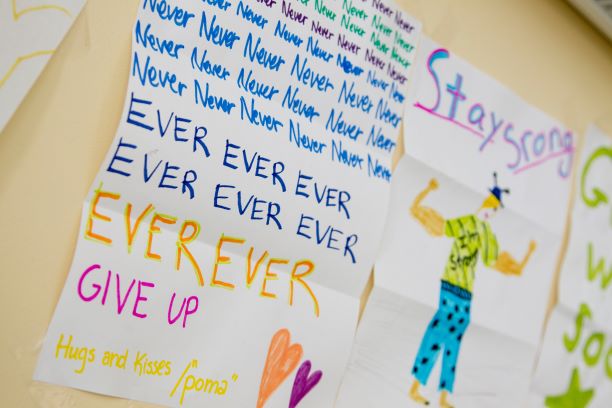 Never Never Never
Never Never Never Never
Never Never Never Never Never
Never Never Never Never Never Never
Never Never Never Never Never Never
Never Never Never Never Never Never
EVER EVER EVER
EVER EVER EVER
EVER EVER
GIVE UP
Hugs and Kisses /"poma"
Stay Srong
G
w
soo